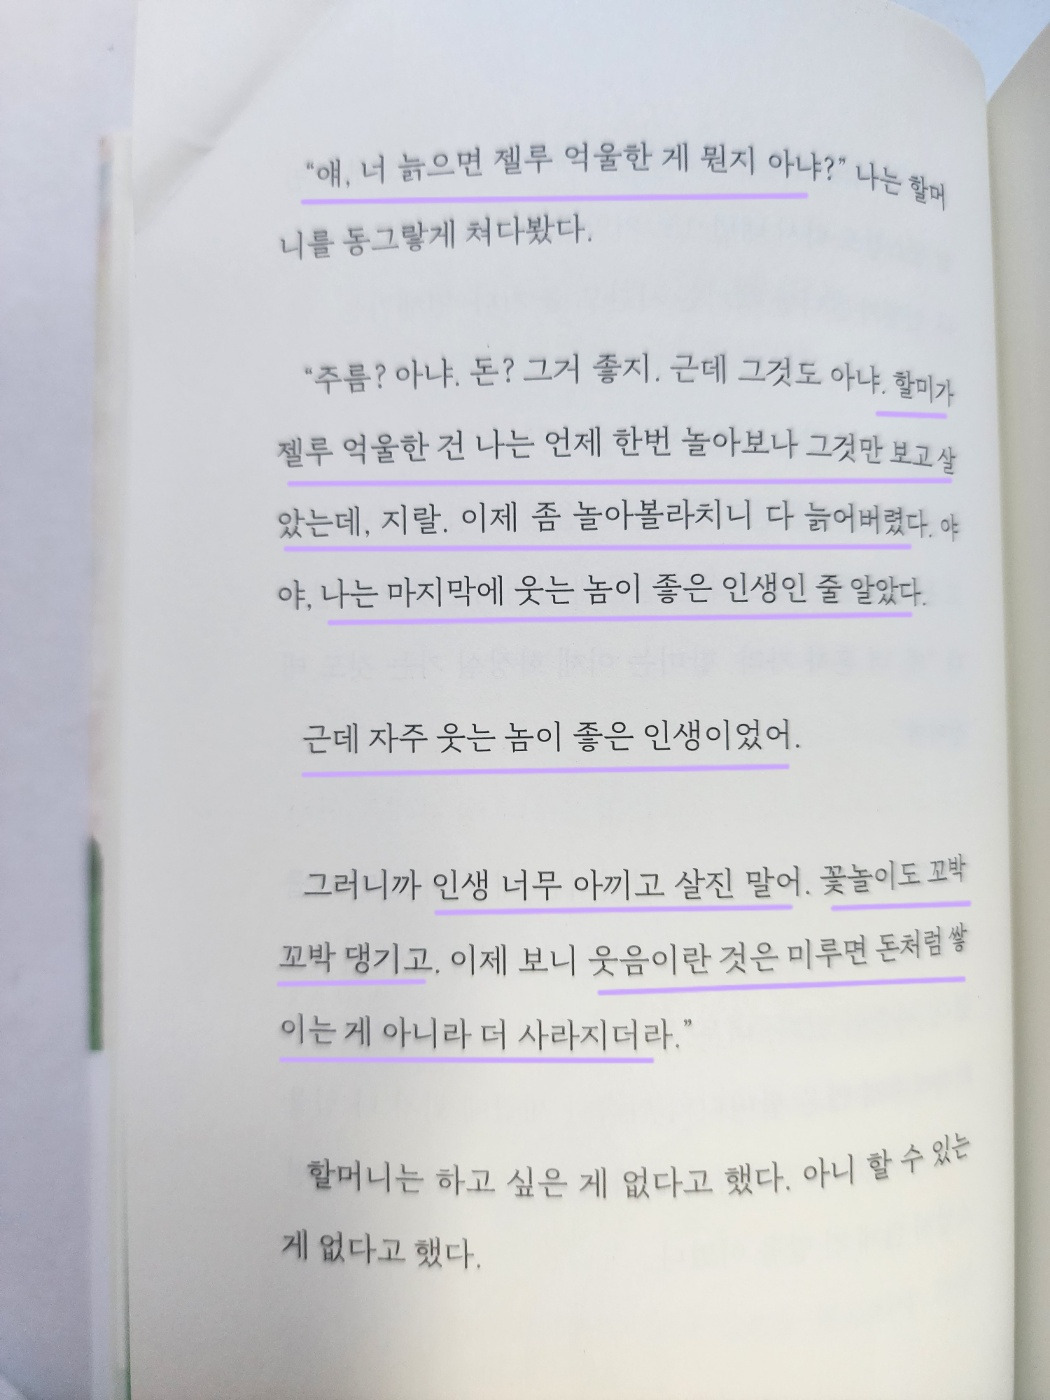 “얘, 너 늙으면 젤루 억울한 게 뭔지 아냐?” 나는 할머
니를 동그랗게 쳐다봤다.
“주름? 아냐. 돈? 그거 좋지. 근데 그것도 아냐. 할미가
젤루 억울한 건 나는 언제 한번 놀아보나 그것만 보고 살
았는데, 지랄. 이제 좀 놀아볼라치니 다 늙어버렸다. 야
야, 나는 마지막에 웃는 놈이 좋은 인생인 줄 알았다.
근데 자주 웃는 놈이 좋은 인생이었어.
그러니까 인생 너무 아끼고 살진 말어. 꽃놀이도 꼬박
꼬박 댕기고. 이제 보니 웃음이란 것은 미루면 돈처럼 쌓
이는 게 아니라 더 사라지더라.”
할머니는 하고 싶은 게 없다고 했다. 아니 할 수 있는
게 없다고 했다.